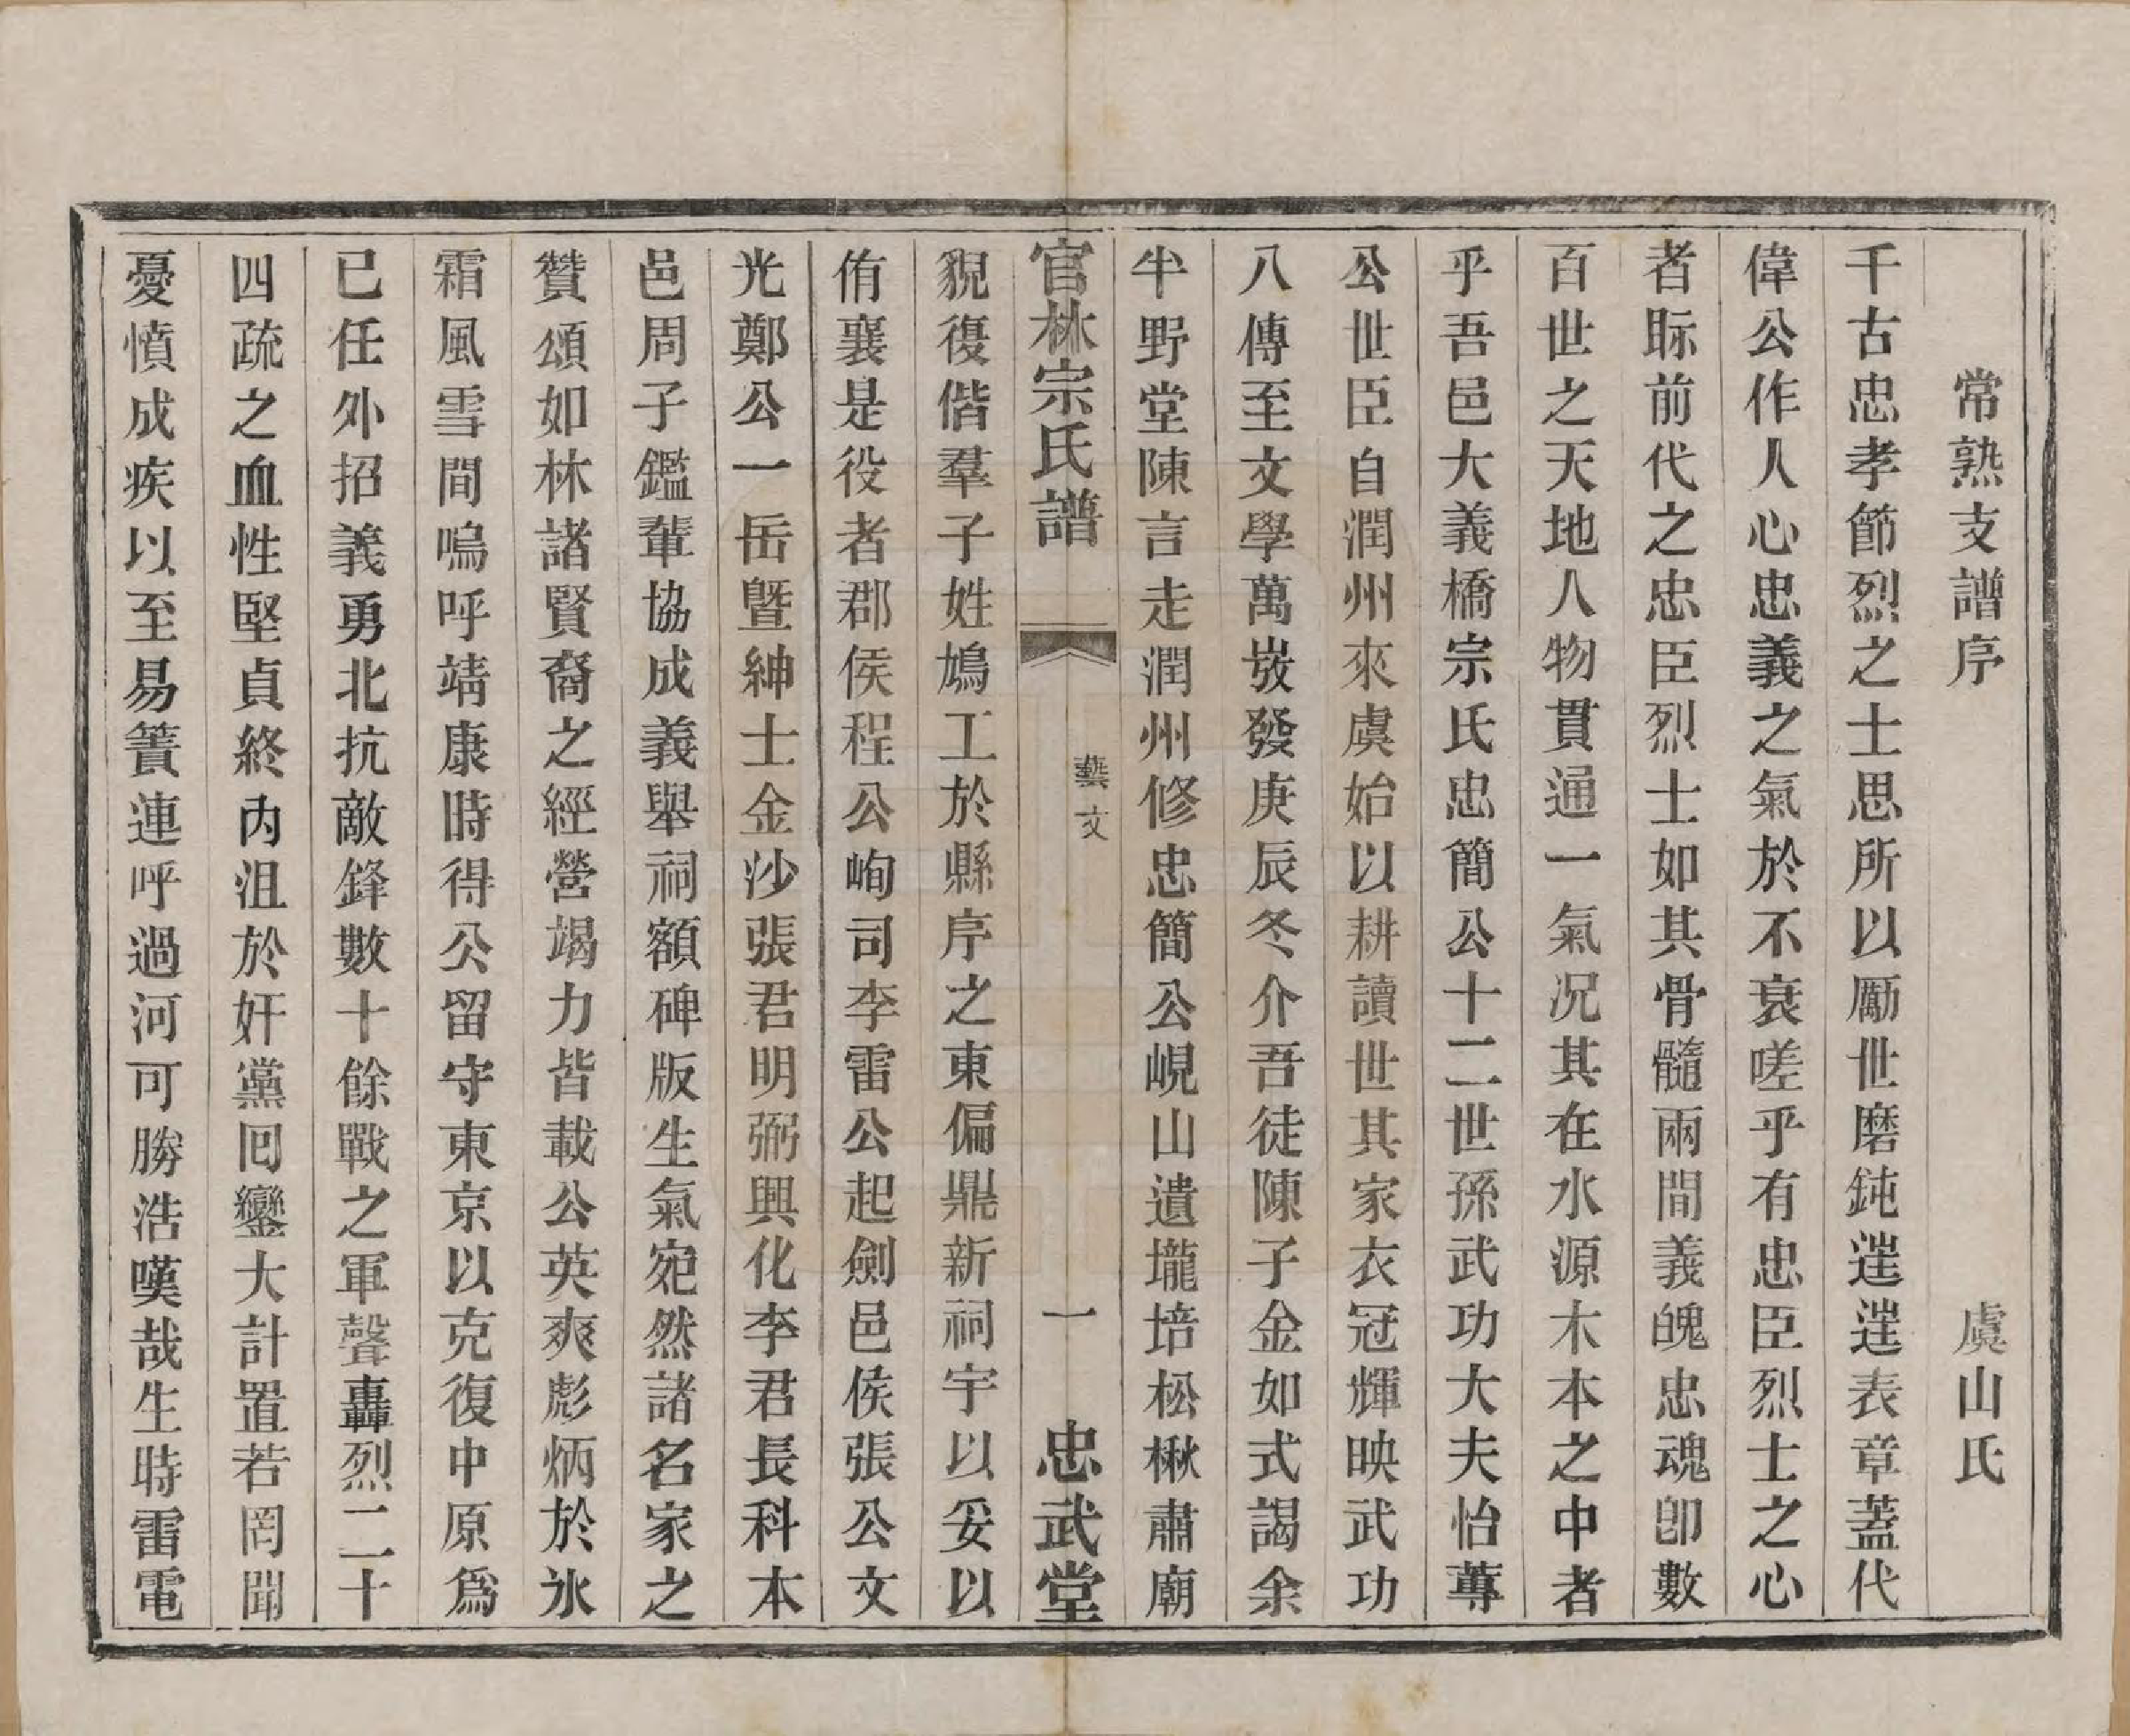 常熟支譜序　虞山氏
千古忠孝節烈之士思所以厲世磨鈍𨗿𨗿表章蓋代
偉公作人心忠義之氣於不衰嗟乎有忠臣烈士之心
者眎前代之忠臣烈士如其骨髓兩間義魄忠魂卽數
百世之天地人物貫通一氣况其在水源木本之中者
乎吾邑大義橋宗氏忠簡公十二世孫武功大夫怡蓴
公世臣自潤州來虞始以耕讀世其家衣冠輝映武功
八傳至文學萬𡵙發庚辰冬介吾徒陳子金如式謁余
半野堂陳言走潤州修忠簡公峴山遺壠培松楸肅廟
官林宗氏譜　藝文　一　忠武堂
貌復偕羣子姓鳩工於縣序之東偏鼎新祠宇以妥以
侑襄是役者郡侯程公峋司李雷公起劍邑侯張公文
光鄭公一岳曁紳士金沙張君明弼興化李君長科本
邑周子鑑輩協成義舉祠額碑版生氣宛然諸名家之
贊頌如林諸賢裔之經營竭力皆載公英爽彪炳於氷
霜風雪間嗚呼靖康時得公留守東京以克復中原爲
已任外招義勇北抗敵鋒數十餘戰之軍聲轟烈二十
四疏之血性堅貞終內沮於奸黨回鑾大計置若罔聞
憂憤成疾以至易簀連呼過河可勝浩嘆哉生時雷電